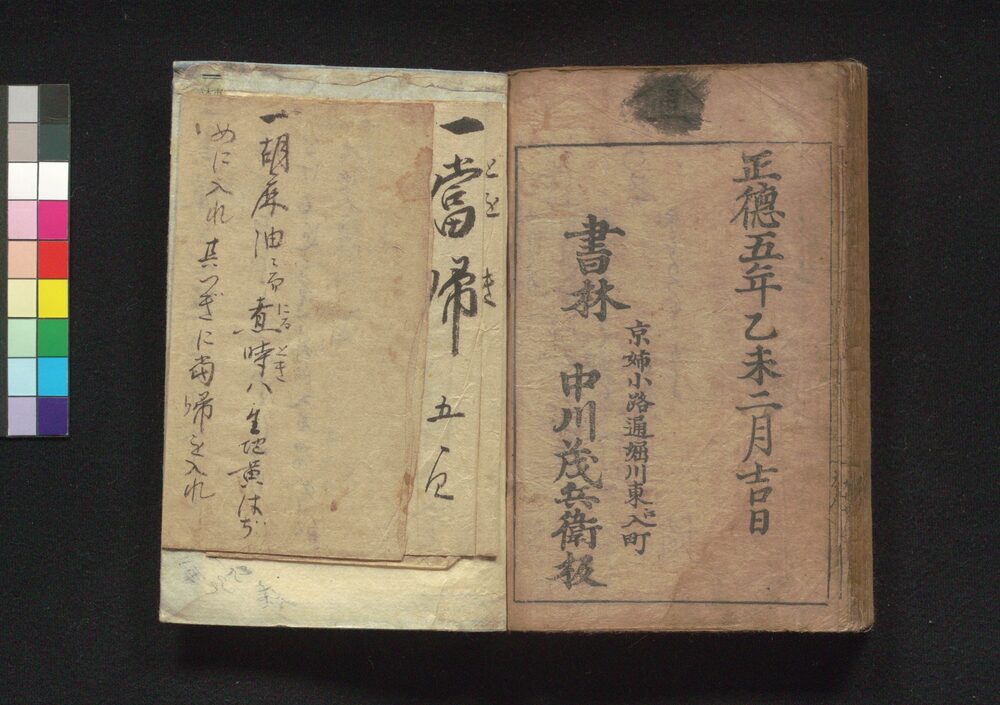 正徳五年乙未二月吉日
京姉小路通堀川東江入町
書林　中川茂兵衛板
一當帰　五
とを　き
一胡麻油ニ而煮時ハ生地黄はぢ
にる　とき
めに入れ　其つぎに當帰を入れ